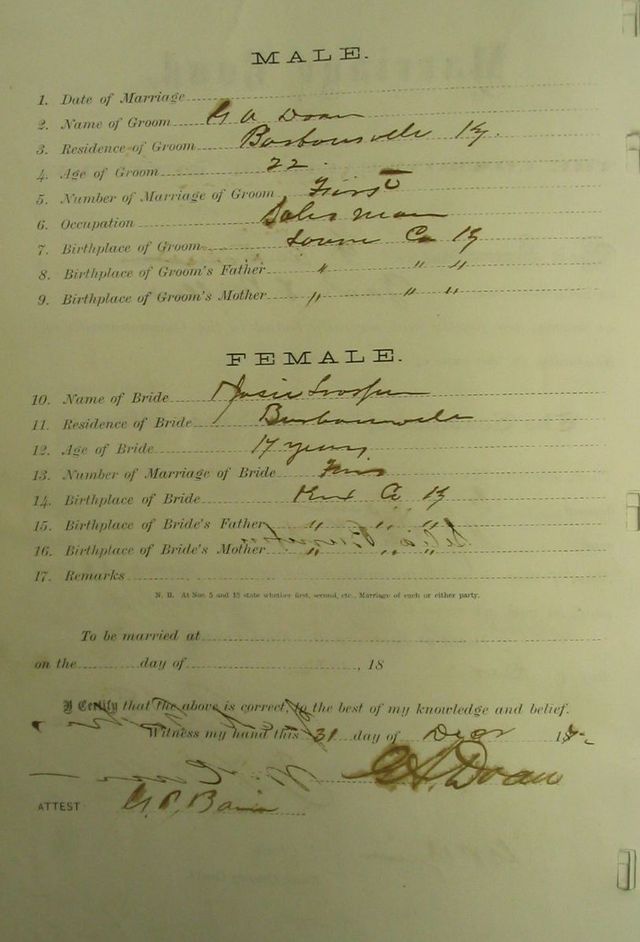 MALE.
1. Date of Marriage
2. Name of Groom G A Doan
3. Residence of Groom Barbourville Ky.
4. Age of Groom 22.
5. Number of Marriage of Groom First
6. Occupation Sales man
7. Birthplace of Groom Co Ky
8. Birthplace of Groom's Father " " "
9. Birthplace of Groom's Mother " " "
FEMALE.
10. Name of Bride Josie
11. Residence of Bride Barbourville
12. Age of Bride 17 years
13. Number of Marriage of Bride First
14. Birthplace of Bride Knox Co Ky
15. Birthplace of Bride's Father " " "
16. Birthplace of Bride's Mother " " "
17. Remarks
N. B. At Nos. 5 and 13 state whether first, second, etc., Marriage of each or either party.
To be married at
on the day of , 18
I Certify that the above is correct, to the best of my knowledge and belief.
Witness my hand this 31 day of 18
G. A. Doan
ATTEST